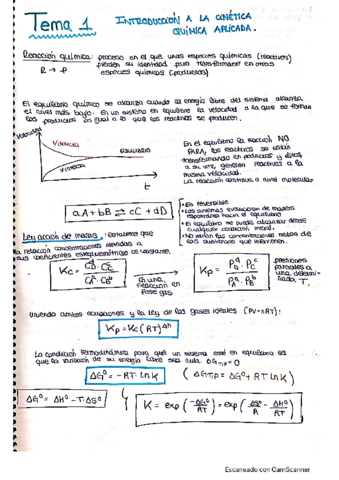 Tema 1
INTRODUCCIÓN A LA CINÉTICA
QUÍMICA APLICADA.
Reacción química: proceso en el que unas especies químicas (reactivos)
R → P pierden su identidad para transformarse en otras
especies químicas (productos)
El equilibrio químico se alcanza cuando la energía libre del sistema alcanza
el nivel más bajo. En un sistema en equilibrio la velocidad a la que se forman
los productos es igual a la que los reactivos se producen.
Velocidad
Vdirecta
EQUILIBRIO
Vinversa
t
En el equilibrio la reacción NO
PARA, los reactivos se están
transformando en productos y éstos
a su vez, generan reactivos a la
misma velocidad.
La reacción continúa a nivel molecular
aA + bB ⇌ cC + dD
• Es reversible
• Los sistemas evolucionan de manera
espontánea hacia el equilibrio
• El equilibrio se puede alcanzar desde
cualquier condición inicial.
• No varían las concentraciones netas de
las sustancias que intervienen.
Ley acción de masas: establece que
la relación concentraciones elevadas a
sus coeficientes estequiométricos es constante.
Kc =
En una
reacción en
fase gas
Kp =
presiones
parciales a
una determi-
nada T.
Uniendo ambas ecuaciones y la ley de los gases ideales (PV=nRT):
Kp = Kc (RT)^Δn
La condición termodinámica para que un sistema esté en equilibrio es
que la variación de su energía libre sea nula ΔG T,p = 0
ΔG⁰ = -RT·lnK
(ΔG T,p = ΔG⁰ + RT·lnK)
ΔG⁰ = ΔH⁰ - T·ΔS⁰
K = exp(-ΔG⁰/RT) = exp(ΔS⁰/R - ΔH⁰/RT)
Escaneado con CamScanner